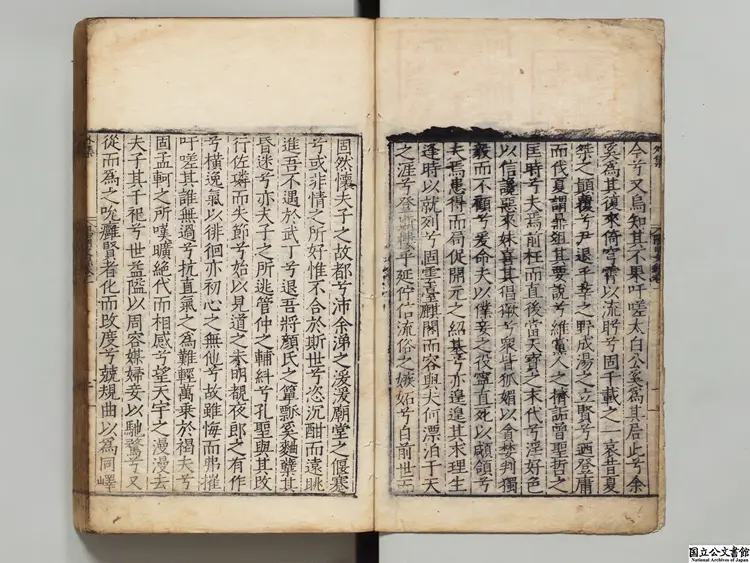 今兮又烏知其不果吁嗟太白公奚爲其居此兮余
奚爲其復來倚穹霄以流眄兮固千載之一哀昔夏
桀之顛覆兮尹退乎莘之野成湯之立賢兮迺登庸
而伐夏謂鼎俎其要說兮維黨人之擠詬曾聖哲之
匡時兮夫焉前枉而直後當天寶之末代兮淫好色
以信讒惡來妹喜其猖獗兮衆皆狐媚以貪婪判獨
毅而不顧兮爰命夫以僕妾之役寧直死以顑頷兮
夫焉患得而局促開元之紹基兮亦遑遑其求理生
逢時以就列兮固雲臺麟閣而容與夫何漂泊于天
之涯兮登斯樓乎延佇信流俗之嫉妬兮自前世而
固然懷夫子之故都兮沛余涕之湲湲廟堂之偃蹇
兮或非情之所好惟不合於斯世兮恣沉酣而遠眺
進吾不遇於武丁兮退吾將顏氏之簞瓢奚麯蘖其
昏迷兮亦夫子之所逃管仲之輔糾兮孔聖與其改
行佐璘而失節兮始以見道之未明覩夜郎之有作
兮橫逸氣以徘徊亦初心之無他兮故雖悔而弗摧
吁嗟其誰無過兮抗直氣之爲難輕萬乘於褐夫兮
固孟軻之所嘆曠絕代而相感兮望天宇之漫漫去
夫子其千祀兮世益隘以周容媒婦妾以馳騖兮又
從而爲之吮癰賢者化而改度兮競規曲以爲同嶧
国立公文書館
National Archives of Japan